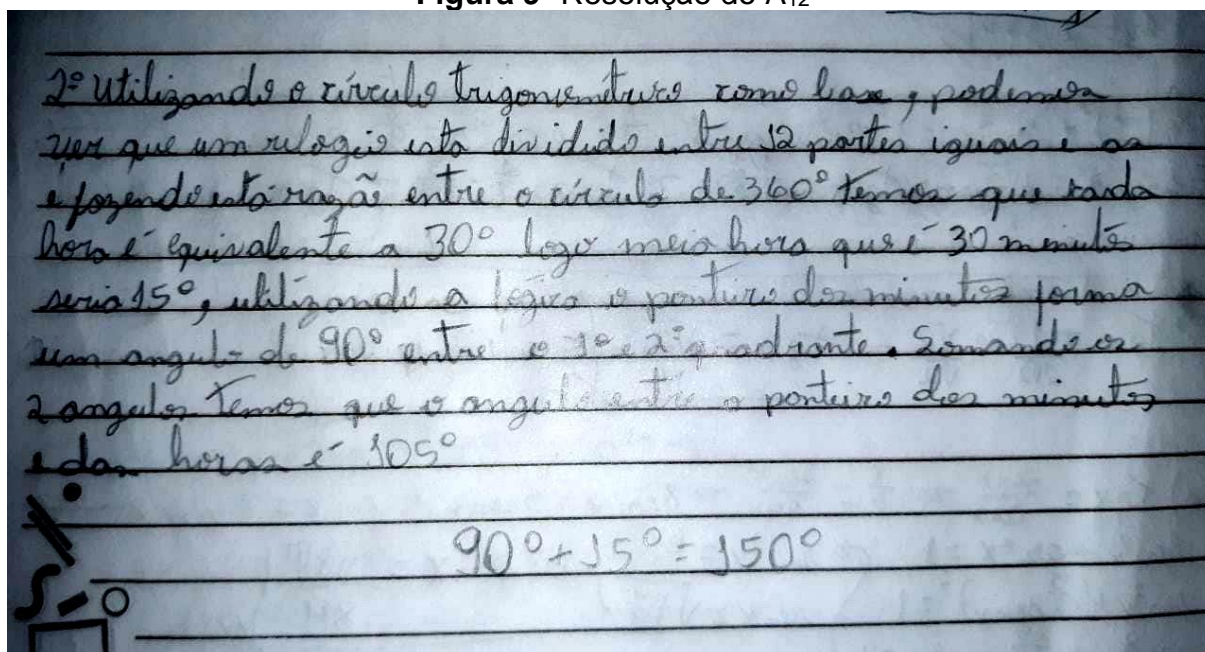 Figura 5- Resolução de A12
2º Utilizando o círculo trigonométrico como base, podemos
ver que um relogio esta dividido entre 12 partes iguais e as
e fazendo esta razão entre o círculo de 360° temos que cada
hora é equivalente a 30° logo meia hora que é 30 minutos
seria 15°, utilizando a lógica o ponteiro dos minutos forma
um angulo de 90° entre o 1º e 2º quadrante. Somando os
2 angulos temos que o angulo entre o ponteiro dos minutos
e das horas é 105°
90° + 15° = 150°